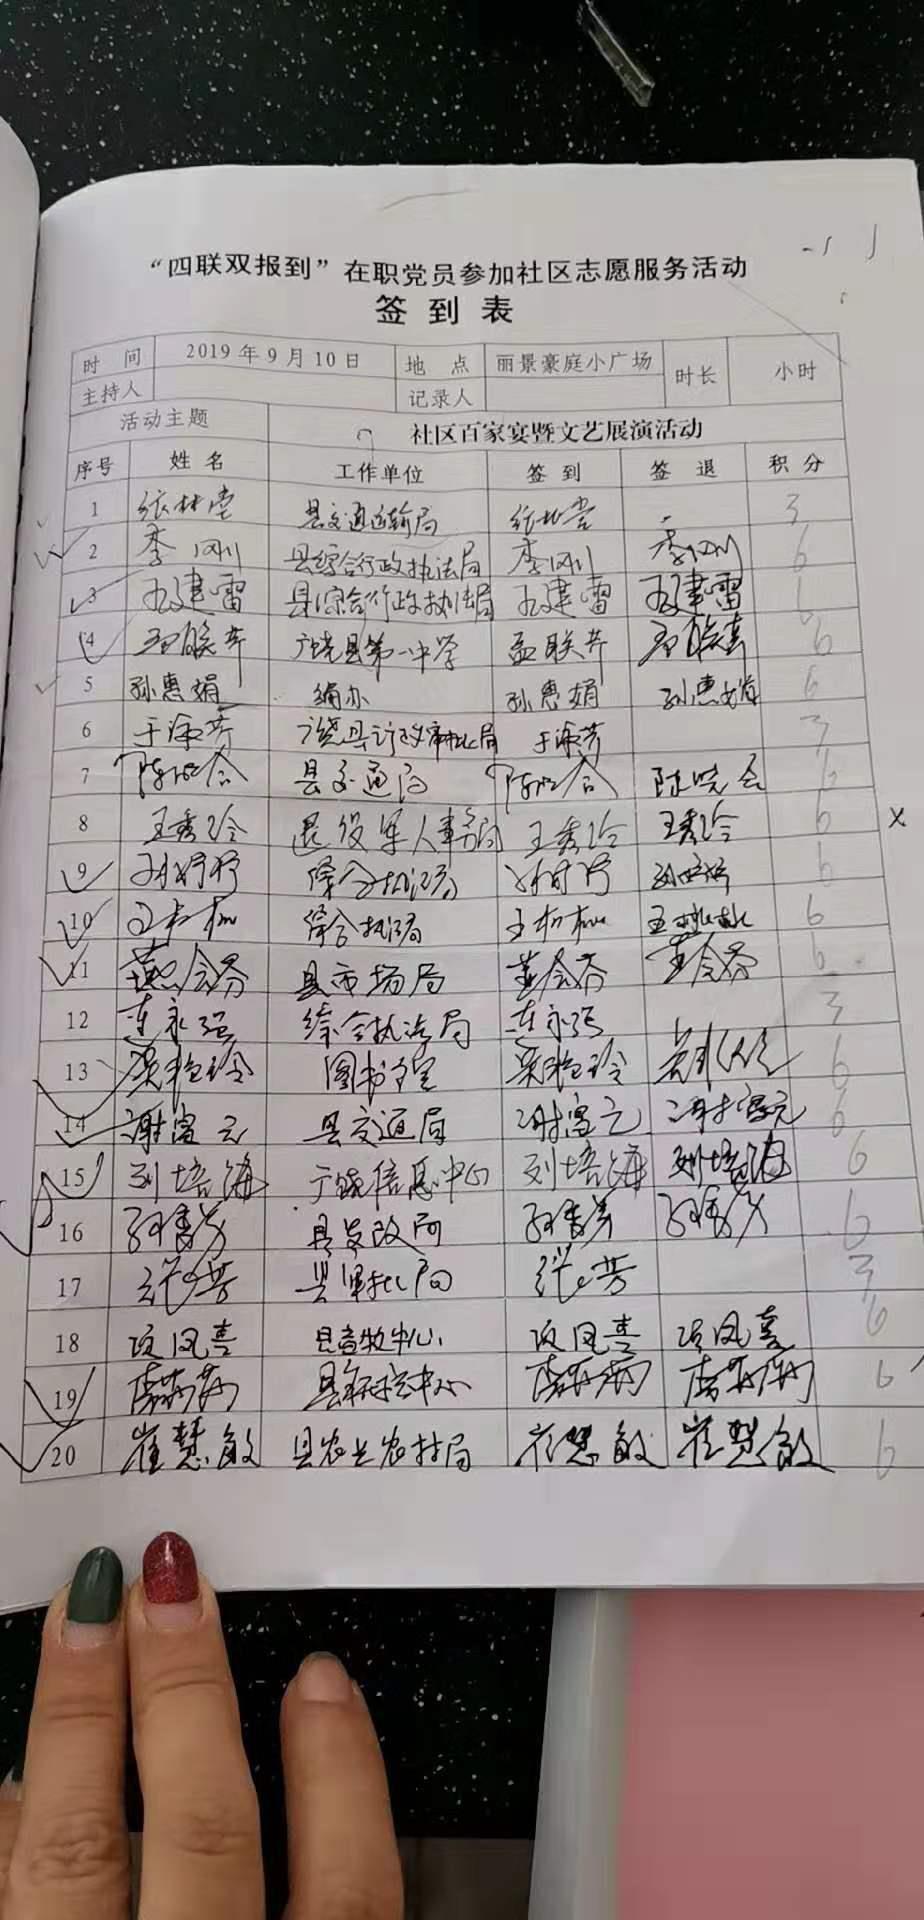 “四联双报到”在职党员参加社区志愿服务活动
签到表
时间 2019年9月10日 地点 丽景豪庭小广场 时长 小时
主持人 记录人
活动主题 社区百家宴暨文艺展演活动
序号 姓名 工作单位 签到 签退 积分
1 张林堂 县交通运输局 张林堂 3
2 李冈川 县综合行政执法局 李冈川 李冈川 6
3 县综合行政执法局 6
4 孟联芹 广饶县第一中学 孟联芹 6
5 孙惠娟 编办 孙惠娟 孙惠娟 6
6 于淑芳 广饶县行政审批局 于淑芳 3
7 县交通局 6
8 王秀玲 退役军人事务局 王秀玲 王秀玲 6 X
9 孙婷婷 综合执法局 孙婷婷 6
10 综合执法局 6
11 董会芬 县市场局 董会芬 董会芬 6
12 连永强 综合执法局 连永强 3
13 吴艳玲 图书馆 吴艳玲 6
14 谢富元 县交通局 谢富元 谢富元 6
15 刘培海 广饶信息中心 刘培海 刘培海 6
16 孙秀芳 县发改局 孙秀芳 孙秀芳 6
17 县审批局 3
18 凤喜 县畜牧中心 凤喜 凤喜 6
19 6
20 崔慧敏 县农业农村局 崔慧敏 崔慧敏 6